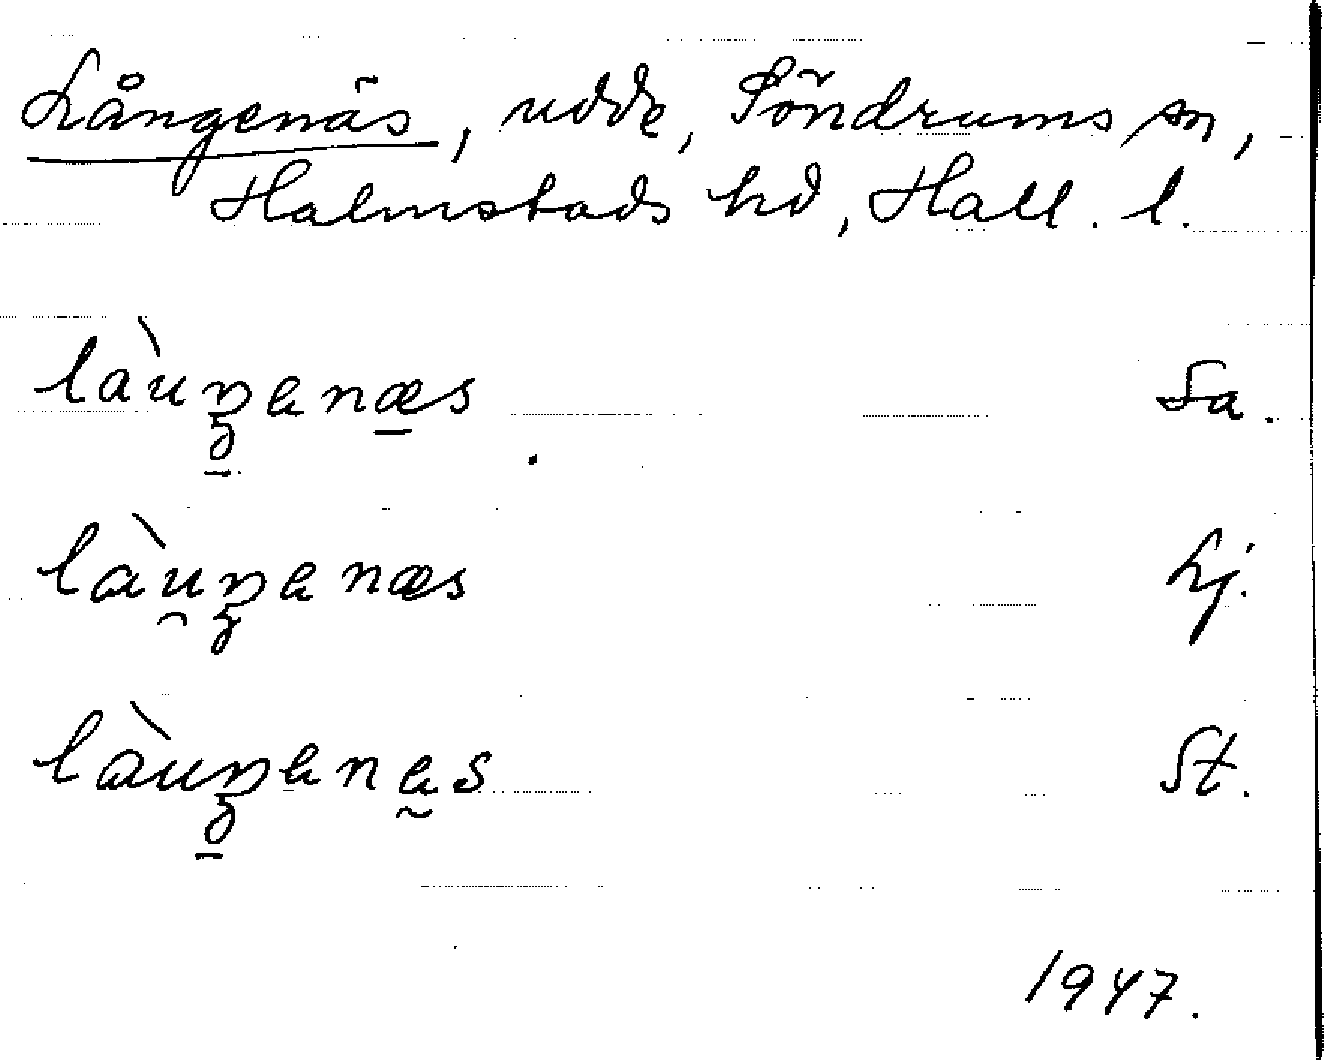 Långenäs, udde, Söndrums sn,
Halmstads hd, Hall. l.
làuŋenæs Sa.
làuŋenæs Lj.
làuŋenes St.
1947.